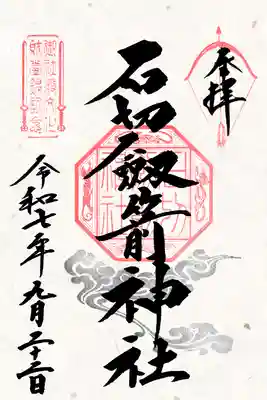 奉拝
石切劔箭神社
令和七年九月二十二日